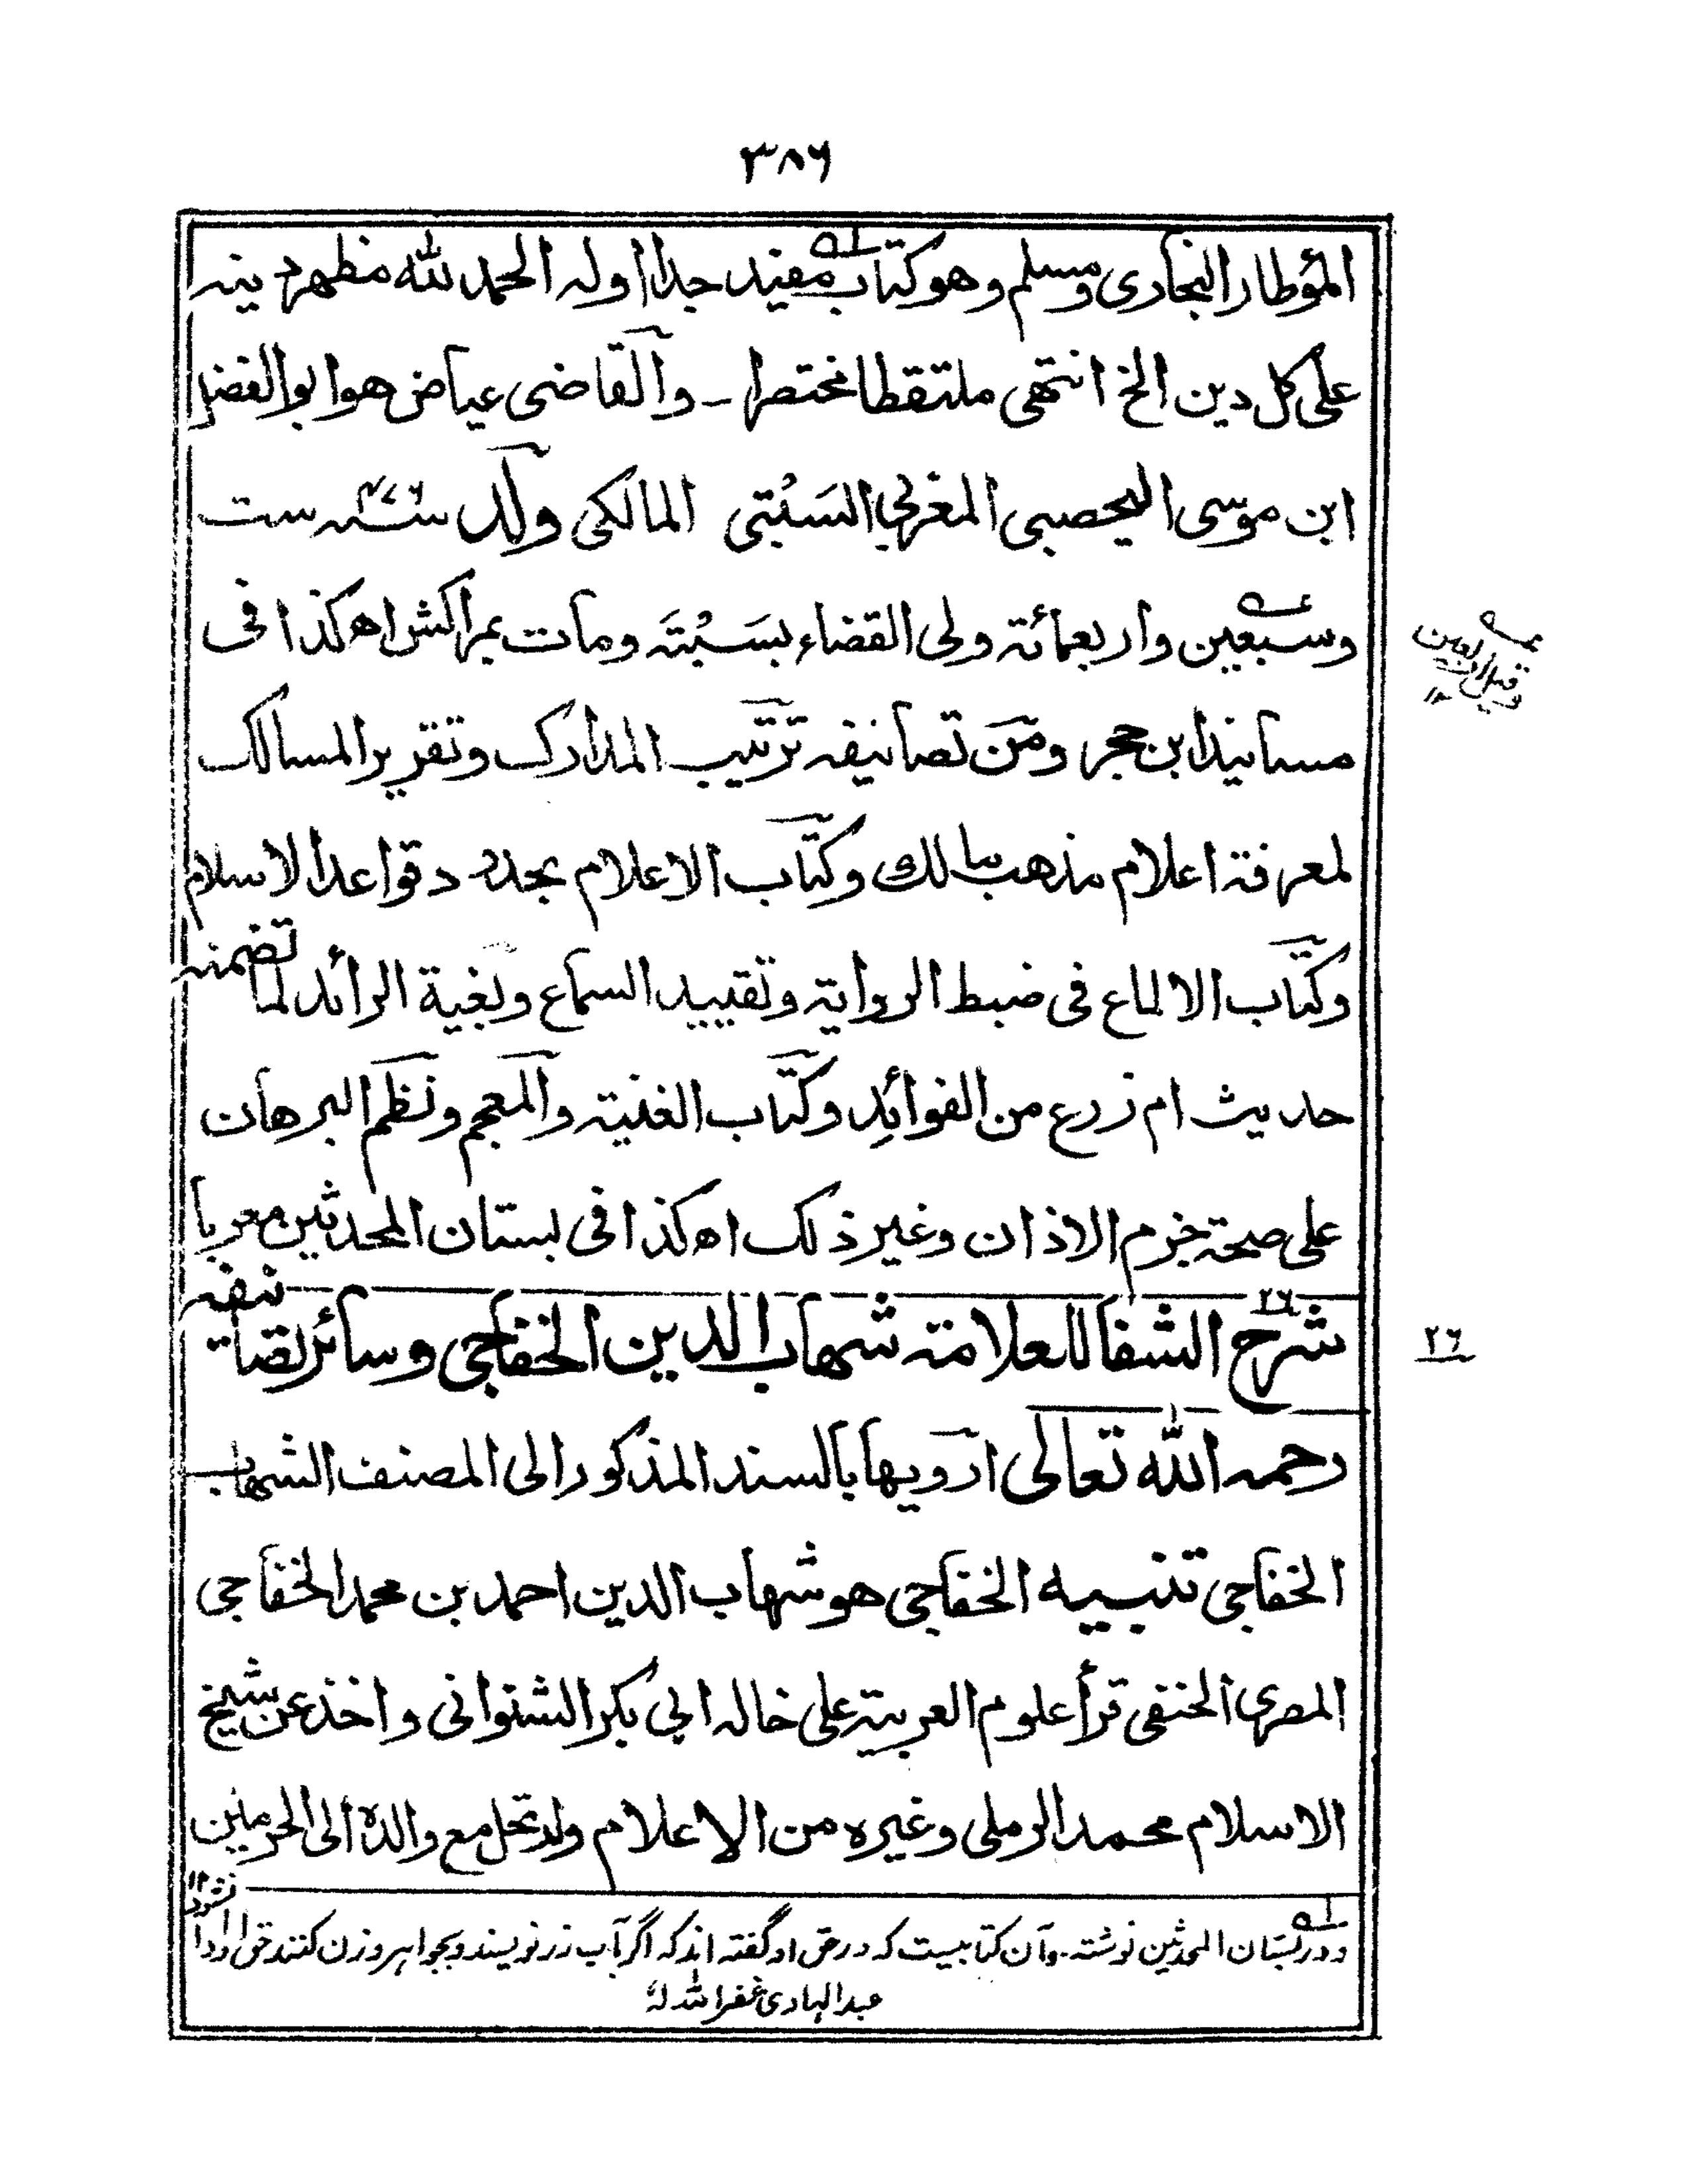 ٣٨٦
المؤطا والبخاري ومسلم وهو كتاب مفيد جدا اوله الحمد لله مظهر دينه
على كل دين الخ انتهى ملتقطا مختصرا ـ والقاضى عياض هو ابو الفضل
ابن موسى اليحصبى المغربي السَبْتى المالكى ولد سنه ٤٧٦ ست
وسبعين واربعمائة ولى القضاء بسَبْتَة ومات بمراكش اه كذا فى
مسانيد ابن حجر ومن تصانيفه ترتيب المدارك وتقرير المسالك
لمعرفة اعلام مذهب مالك وكتاب الاعلام بحدود قواعد الاسلام
وكتاب الالماع فى ضبط الرواية وتقييد السماع وبغية الرائد لما تضمنه
حديث ام زرع من الفوائد وكتاب الغنية والمعجم ونظم البرهان
على صحة جزم الاذان وغير ذلك اه كذا فى بستان المحدثين معربا
٢٦ شرح الشفا للعلامة شهاب الدين الخفاجي وسائر تصانيفه
٢٦
رحمه الله تعالى ارويها بالسند المذكور الى المصنف الشهاب
الخفاجى تنبيه الخفاجى هو شهاب الدين احمد بن محمد الخفاجى
المصرى الحنفى قرأ علوم العربية على خاله ابي بكر الشنوانى واخذ عن شيخ
الاسلام محمد الرملى وغيره من الاعلام وارتحل مع والده الى الحرمين
ودر بستان المحدثين نوشته وآن كتابيست كه در حق او گفته اند كه اگر بآب زر نويسند وبجواهر وزن كنند حق او ادا نشود ١٢
عبد الهادى غفر الله له